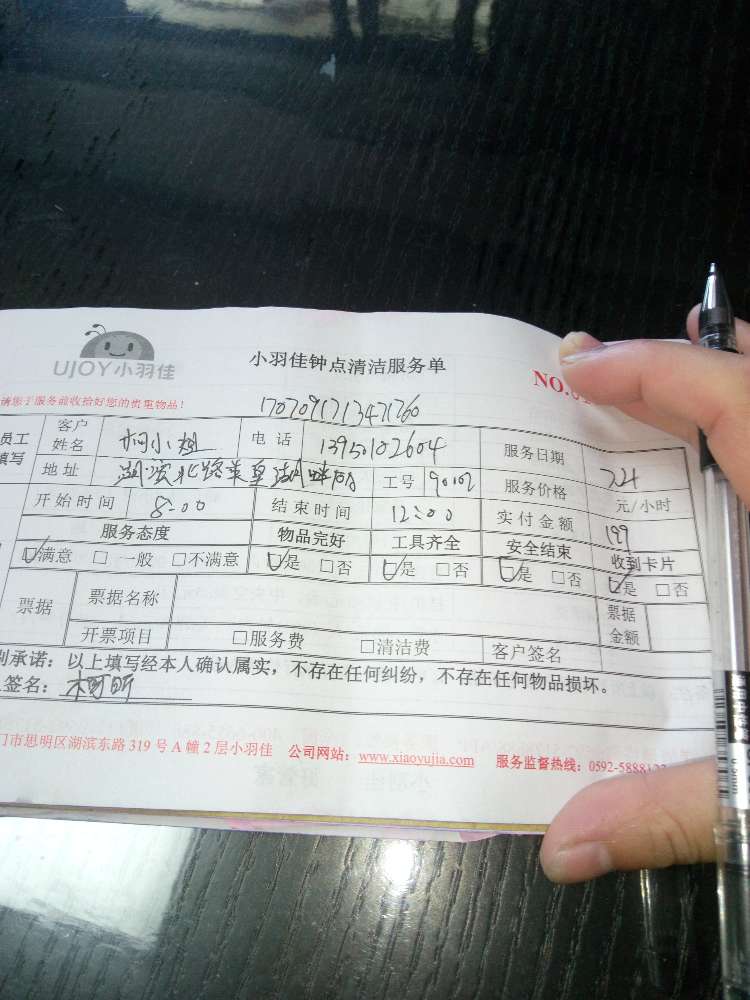 UJOY小羽佳
小羽佳钟点清洁服务单
NO.
请您于服务前收拾好您的贵重物品!
1707091713471760
员工 填写 客户姓名 小姐 电话 1395102604 服务日期
地址 湖滨北路 湖畔 工号 90102 服务价格 元/小时
开始时间 8-00 结束时间 12:00 实付金额 199
服务态度 物品完好 工具齐全 安全结束 收到卡片
☑满意 □一般 □不满意 ☑是 □否 ☑是 □否 ☑是 □否 ☑是 □否
票据 票据名称 票据金额
开票项目 □服务费 □清洁费 客户签名
承诺:以上填写经本人确认属实,不存在任何纠纷,不存在任何物品损坏。
签名:
门市思明区湖滨东路 319 号 A 幢 2 层小羽佳 公司网站:www.xiaoyujia.com 服务监督热线:0592-5888